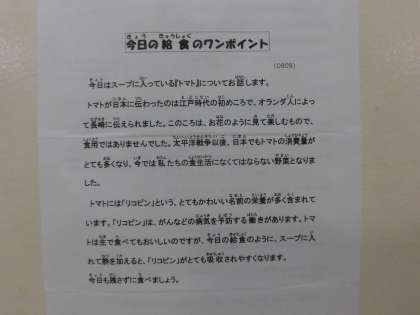 今日の給食のワンポイント
(0909)
今日はスープに入っている『トマト』についてお話します。
トマトが日本に伝わったのは江戸時代の初めごろで、オランダ人によっ
て長崎に伝えられました。このころは、お花のように見て楽しむもので、
食用ではありませんでした。太平洋戦争以後、日本でもトマトの消費量が
とても多くなり、今では私たちの食生活になくてはならない野菜となりま
した。
トマトには「リコピン」という、とてもかわいい名前の栄養が多く含まれて
います。「リコピン」は、がんなどの病気を予防する働きがあります。トマ
トは生で食べてもおいしいのですが、今日の給食のように、スープに入
れて熱を加えると、「リコピン」がとても吸収されやすくなります。
今日も残さずに食べましょう。